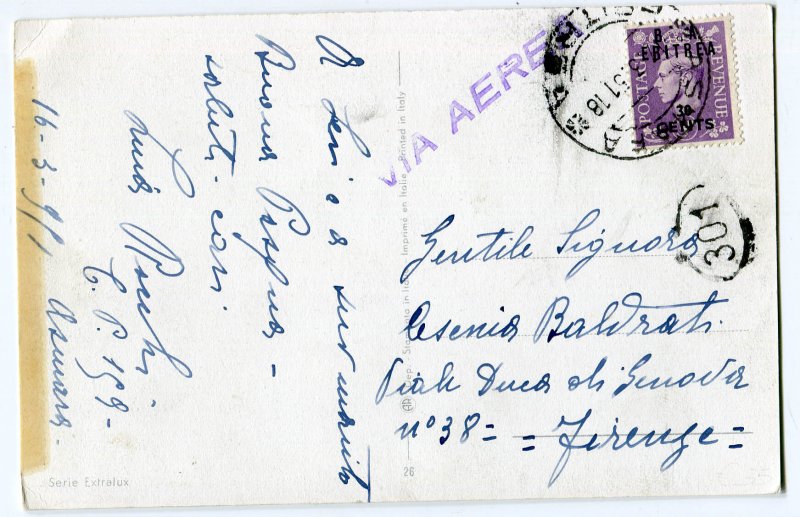 A Lei e a suo marito
Buona Pasqua =
saluti cari.
Luisa
C. P. 159 -
16-3-951 Asmara -
Serie Extralux
26
Imprimé en Italie Printed in Italy
VIA AEREA
B. A.
ERITREA
POSTAGE
REVENUE
30
CENTS
51.18
301
Gentile Signora
Esenia Baldrati.
Viale Duca di Genova
n° 38 =
= Firenze =